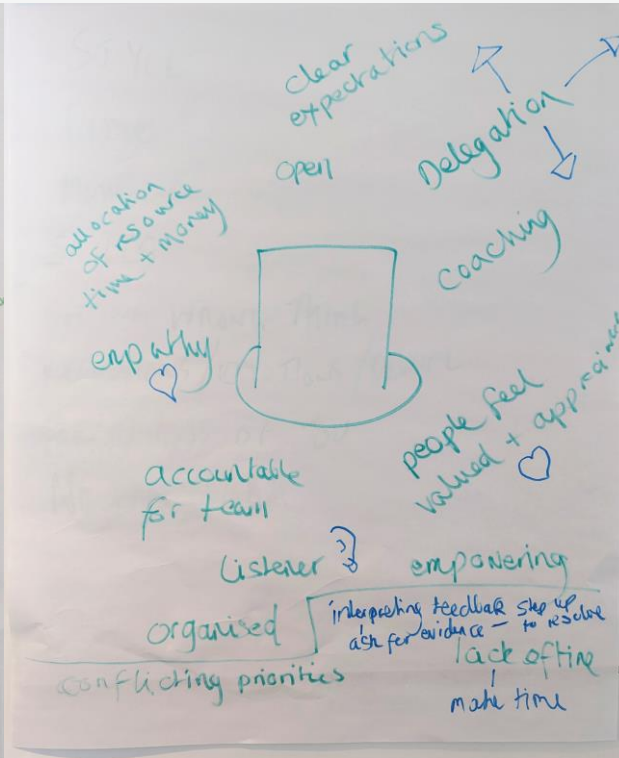 clear
expectations
open
Delegation
allocation
of resource
time + money
coaching
empathy
people feel
valued +
accountable
for team
Listener
empowering
organised
interpreting feedback step up
ask for evidence - to resolve
lack of time
make time
conflicting priorities